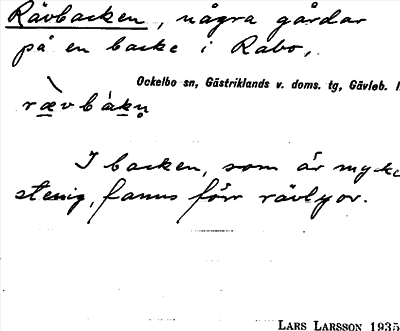 Rävbacken, några gårdar
på en backe i Rabo,
Ockelbo sn, Gästriklands v. doms. tg, Gävleb. l.
rævbàkņ
I backen, som är mycke
stenig, fanns förr rävlyor.
LARS LARSSON 1935